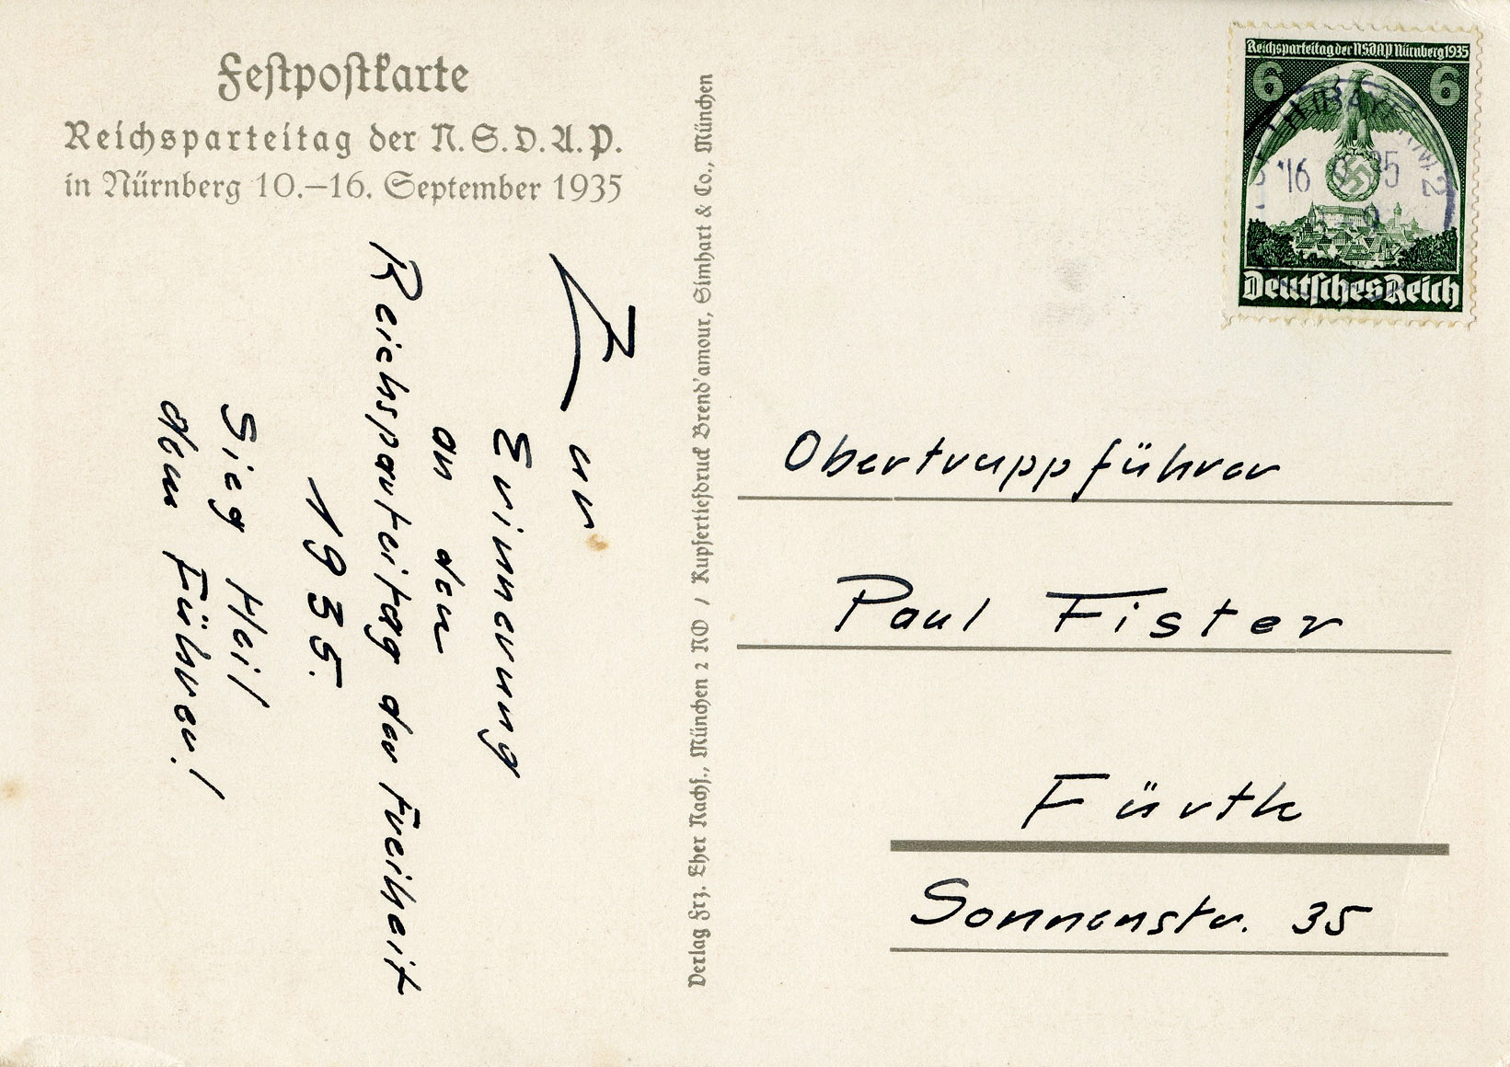 Festpostkarte
Reichsparteitag der N.S.D.A.P.
in Nürnberg 10.–16. September 1935
Zur
Erinnerung
an den
Reichsparteitag der Freiheit
1935.
Sieg Heil
dem Führer!
Verlag Frz. Eher Nachf., München 2 NO / Kupfertiefdruck Brend'amour, Simhart & Co., München
Reichsparteitag der NSDAP Nürnberg 1935
6 6
16 35
2
Deutsches Reich
Obertruppführer
Paul Fister
Fürth
Sonnenstr. 35